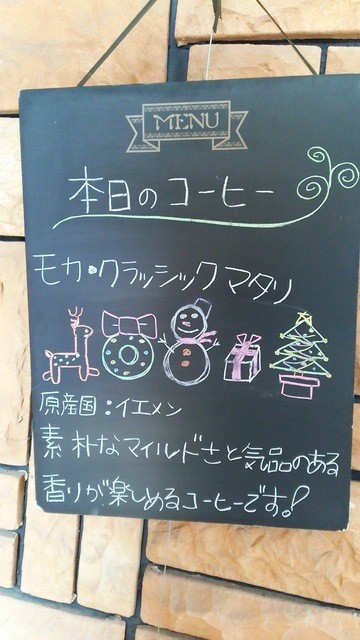 MENU
本日のコーヒー
モカ・クラッシックマタリ
原産国:イエメン
素朴なマイルドさと気品のある
香りが楽しめるコーヒーです!